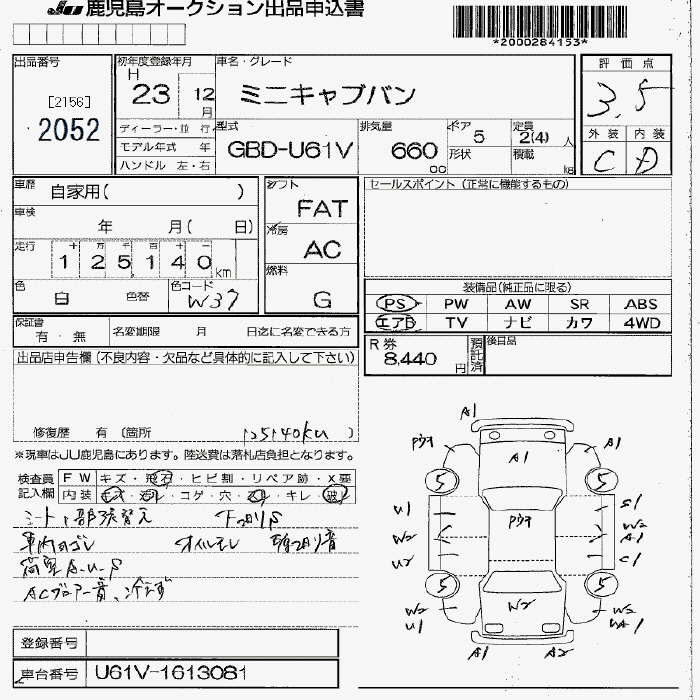 JU 鹿児島オークション出品申込書
*2000284153*
出品番号
[2156]
2052
初年度登録年月
H 23 12月
ディーラー・並行
モデル年式 年
ハンドル 左・右
車名・グレード
ミニキャブバン
型式
GBD-U61V
排気量
660
cc
ドア 5
形状
定員 2(4)人
積載 kg
評価点
3.5
外装 内装
C D
車歴 自家用( )
車検 年 月( 日)
走行 十 万 千 百 十
125,140km
色 白 色替
色コード W37
シフト FAT
冷房 AC
燃料 G
セールスポイント (正常に機能するもの)
装備品(純正品に限る)
PS PW AW SR ABS
エアB TV ナビ カワ 4WD
保証書 有・無
名変期限 月 日迄に名変できる方
R券 8,440円
預託済
後日品
出品店申告欄(不良内容・欠品など具体的に記入して下さい)
修復歴 有 (箇所 125140km )
※現車はJU鹿児島にあります。陸送費は落札店負担となります。
検査員記入欄
FW キズ・飛石・ヒビ割・リペア跡・X要
内装 キズ・汚れ・コゲ・穴・スレ・キレ・破レ
シート1部張替え 下廻りS
車内ヨゴレ オイルモレ
荷室A-U-S
ACブロアー音、冷えず
A1
Pウオ A1
5 5
U1 S1
W2 Pウオ W2
A1
U2 C1
5 5
W2 W2 W2
U1 WA1
A1 A2
登録番号
車台番号 U61V-1613081